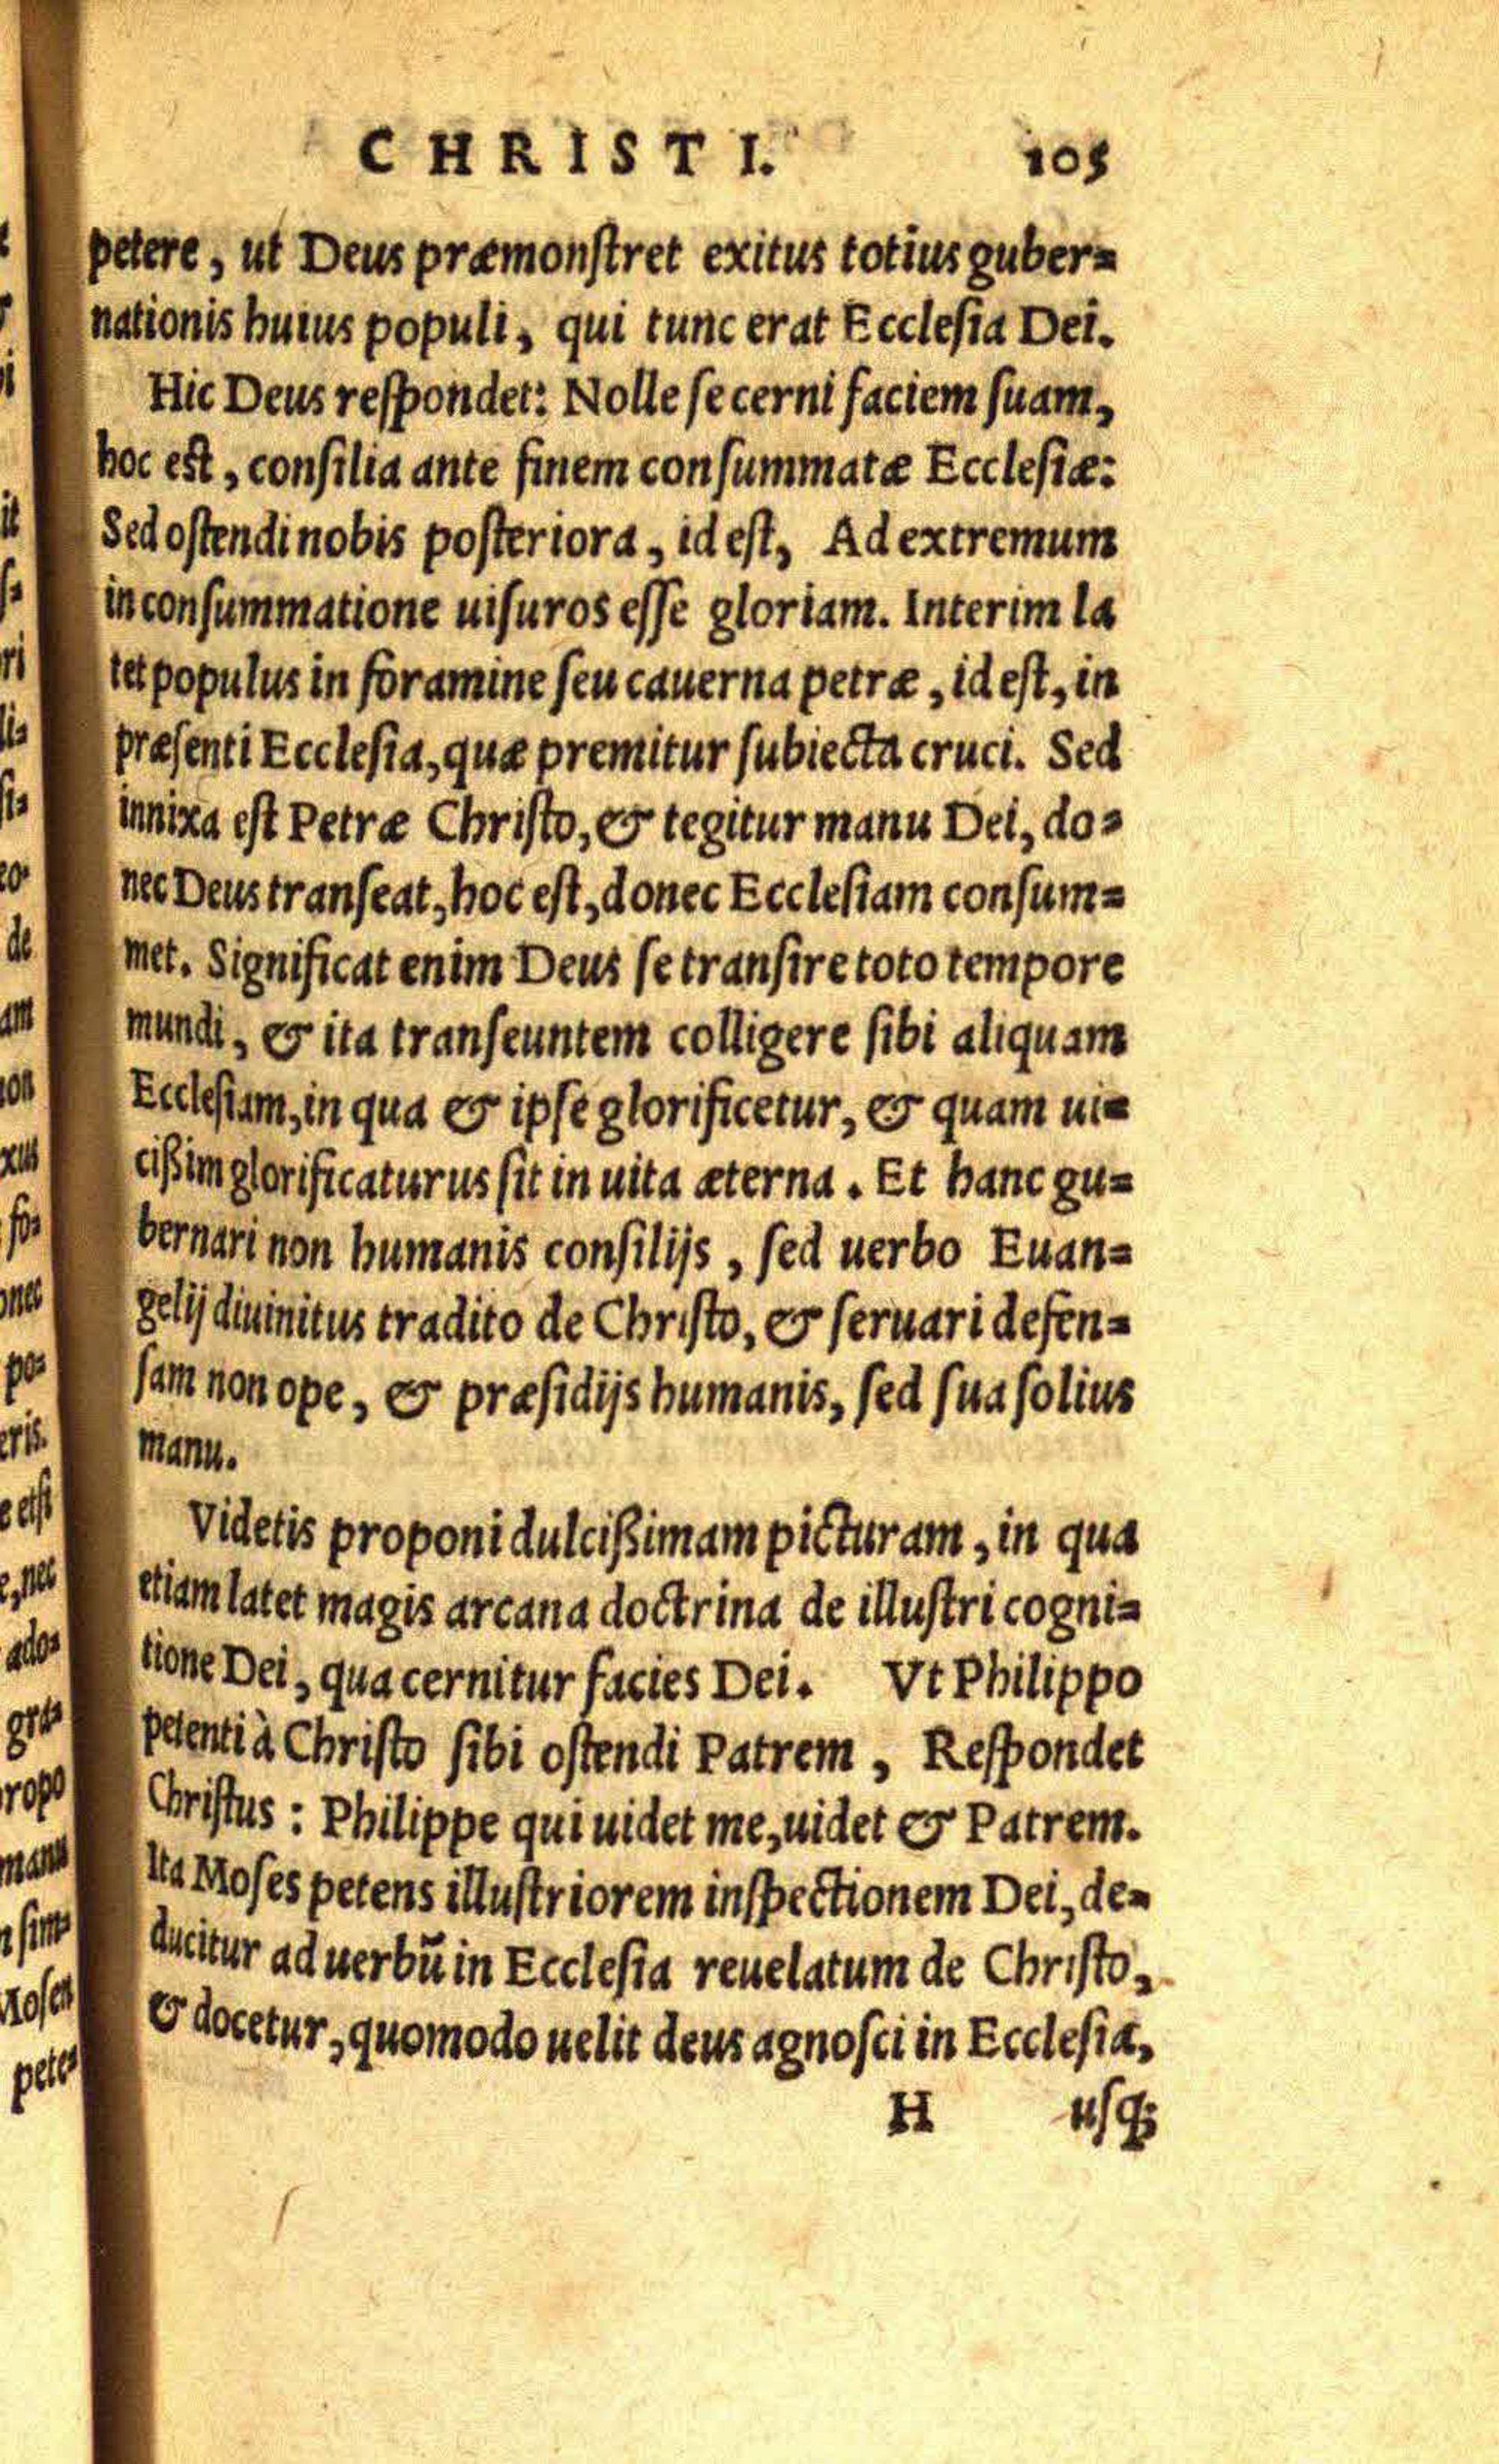 CHRISTI. 105
petere, ut Deus præmonſtret exitus totius guber=
nationis huius populi, qui tunc erat Eccleſia Dei.
Hic Deus reſpondet: Nolle ſe cerni faciem ſuam,
hoc eſt, conſilia ante finem conſummatæ Eccleſiæ:
Sed oſtendi nobis poſteriora, id eſt, Ad extremum
in conſummatione uiſuros eſſe gloriam. Interim la
tet populus in foramine ſeu cauerna petræ, id eſt, in
præſenti Eccleſia, quæ premitur ſubiecta cruci. Sed
innixa eſt Petræ Chriſto, & tegitur manu Dei, do=
nec Deus tranſeat, hoc eſt, donec Eccleſiam conſum=
met. Significat enim Deus ſe tranſire toto tempore
mundi, & ita tranſeuntem colligere ſibi aliquam
Eccleſiam, in qua & ipſe glorificetur, & quam ui=
cißim glorificaturus ſit in uita æterna. Et hanc gu=
bernari non humanis conſilijs, ſed uerbo Euan=
gelij diuinitus tradito de Chriſto, & ſeruari defen=
ſam non ope, & præſidijs humanis, ſed ſua ſolius
manu.
Videtis proponi dulcißimam picturam, in qua
etiam latet magis arcana doctrina de illuſtri cogni=
tione Dei, qua cernitur facies Dei. Vt Philippo
petenti à Chriſto ſibi oſtendi Patrem, Reſpondet
Chriſtus: Philippe qui uidet me, uidet & Patrem.
Ita Moſes petens illuſtriorem inſpectionem Dei, de=
ducitur ad uerbū in Eccleſia reuelatum de Chriſto,
& docetur, quomodo uelit deus agnoſci in Eccleſia,
H uſq;